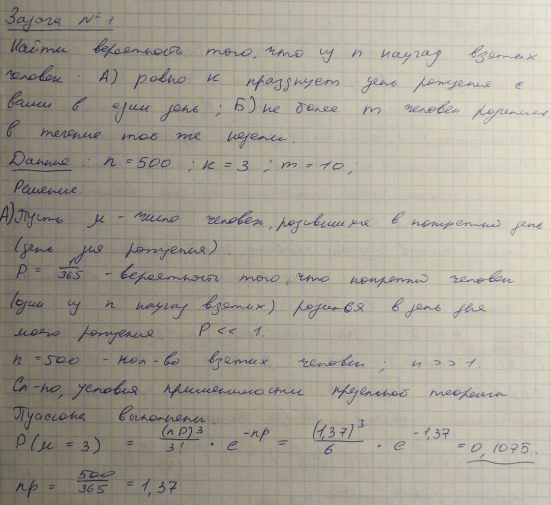 Задача № 1
Найти вероятность того, что из n наугад взятых
человек: А) равно к празднует день рождения с
вами в один день; Б) не более m человек родились
в течение той же недели.
Данные: n = 500; к = 3; m = 10;
Решение
А) Пусть μ - число человек, родившихся в конкретный день
(день дня рождения)
P = 1/365 - вероятность того, что конкретный человек
(один из n наугад взятых) родился в день дня
моего рождения. P << 1.
n = 500 - кол-во взятых человек; n >> 1.
Сл-но, условия применимости предельной теоремы
Пуассона выполнены.
P(μ = 3) = (np)³/3! · e^-np = (1,37)³/6 · e^-1,37 = 0,1075.
np = 500/365 = 1,37